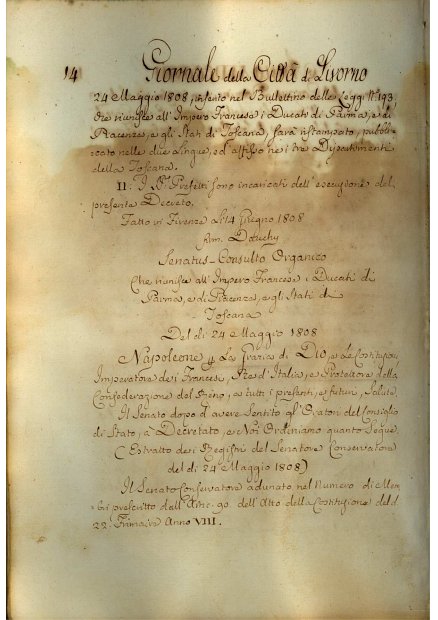 14 Giornale della Città di Livorno
24 Maggio 1808, inserito nel Bullettino delle Leggi N.° 193.
che riunisce all'Impero Francese i Ducati di Parma, e di
Piacenza, e gli Stati di Toscana, sarà ristampato, pubbli-
cato nelle due Lingue, ed affisso nei tre Dipartimenti
della Toscana.
II. I SS.ri Prefetti sono incaricati dell'esecuzione del
presente Decreto.
Fatto in Firenze li 14 Giugno 1808
Dauchy
Senatus-Consulto Organico
Che riunisce all'Impero Francese i Ducati di
Parma, e di Piacenza, e gli Stati di
Toscana
Del dì 24 Maggio 1808
Napoleone p. La Grazia di Dio, e Le Costituzioni
Imperatore dei Francesi, Re d'Italia, e Protettore della
Confederazione del Reno, a tutti i presenti, e futuri, Salute
Il Senato dopo d'avere Sentito gl'Oratori del Consiglio
di Stato, à Decretato, e Noi Ordiniamo quanto Segue
(Estratto dei Registri del Senatore Conservatore
del dì 24 Maggio 1808)
Il Senato Conservatore adunato nel Numero di Mem-
bri prescritto dall'Art.° 90 dell'Atto della Costituzione del dì
22. Primaire Anno VIII.